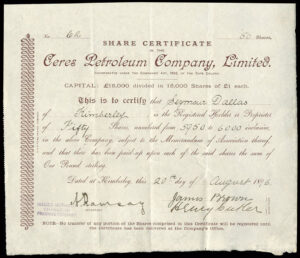 No 62 50 Shares.
SHARE CERTIFICATE
IN THE
Ceres Petroleum Company, Limited.
INCORPORATED UNDER THE COMPANIES' ACT, 1892, OF THE CAPE COLONY.
CAPITAL: £15,000 divided in 15,000 Shares of £1 each.
This is to certify that Seymour Dallas
of Kimberley is the Registered Holder or Proprietor
of Fifty Shares, numbered from 5950 to 6000 inclusive,
in the above Company, subject to the Memorandum of Association thereof,
and that there has been paid up upon each of the said shares the sum of
One Pound sterling.
Dated at Kimberley, this 20th day of August 1896.
James Brown
Henry
NOTE: No transfer of any portion of the Shares comprised in this Certificate will be registered until
the certificate has been delivered at the Company's Office.